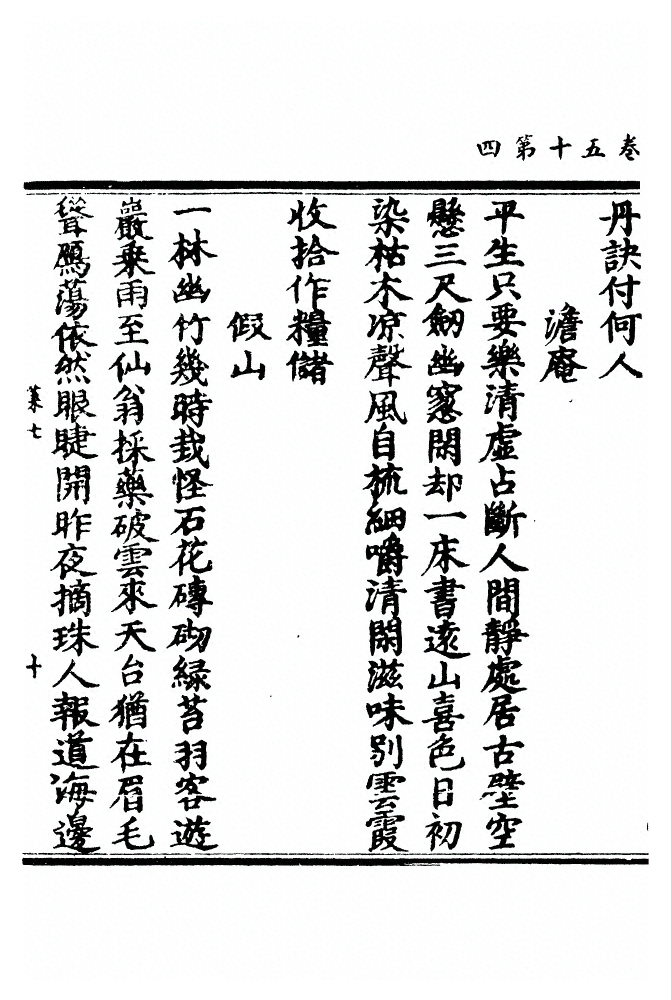 卷五十第四
丹訣付何人
澹庵
平生只要樂清虛占斷人間靜處居古壁空
懸三尺劒幽窓閑却一床書遠山喜色日初
染枯木凉聲風自梳細嚼清閑滋味别雲霞
收拾作糧儲
假山
一林幽竹幾時栽怪石花磚砌緑苔羽客遊
巖乗雨至仙翁採藥破雲來天台猶在眉毛
聳鴈蕩依然眼睫開昨夜摘珠人報道海邊
菓七
十